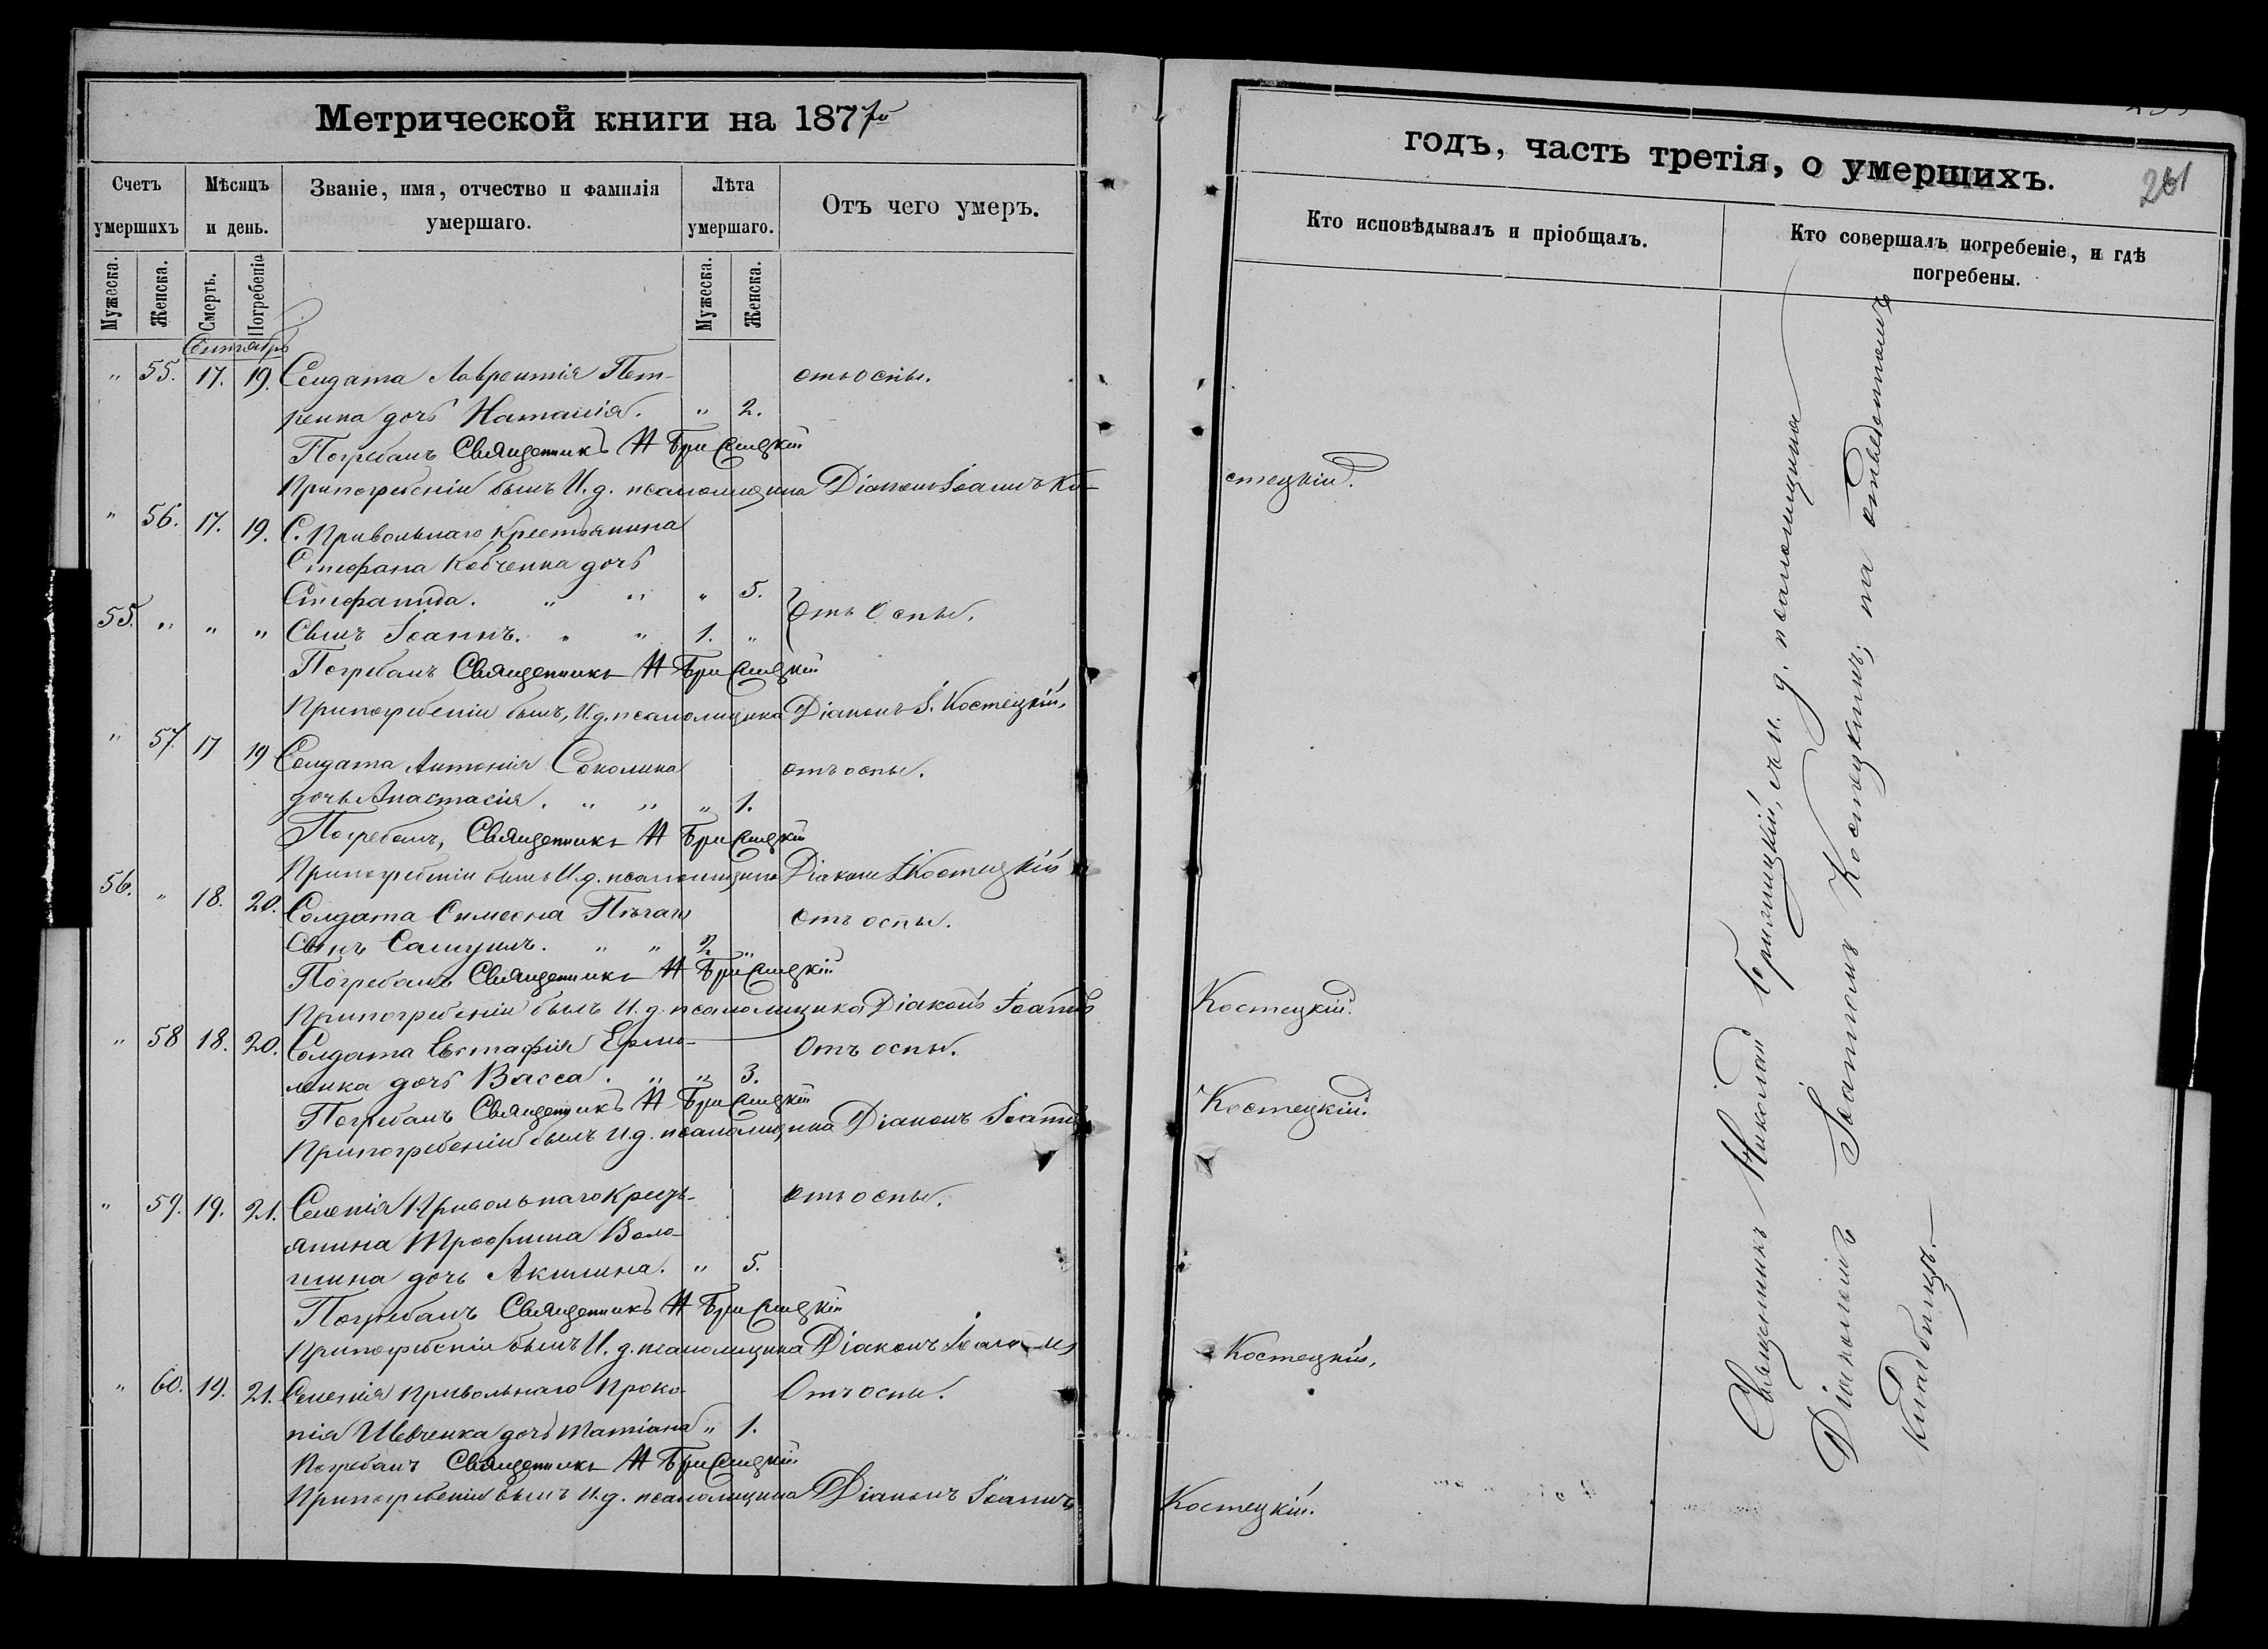 Метрической книги на 1877й
Счетъ умершихъ
Мѣсяцъ и день.
Званіе, имя, отчество и фамилія умершаго.
Лѣта умершаго.
Отъ чего умеръ.
Мужеска.
Женска.
Смерть.
Погребенія
Мужеска.
Женска.
Сентябрь
" 55. 17. 19. Солдата Лаврентія Пет- отъ оспы.
ренка дочь Наталія. " 2.
Погребалъ Священникъ Н Брилицкій
При погребеніи былъ И. д. псаломщика Діаконъ Іоаннъ Ко-
" 56. 17. 19. С. Привольнаго крестьянина
Стефана Кобченка дочь
Стефанида. " " " 5.
Отъ Оспы.
55. " " " Сынъ Іоаннъ. " " 1. "
Погребалъ Священникъ Н Брилицкій
При погребеніи былъ, И. д. псаломщика Діаконъ І. Костецкій,
" 57. 17 19 Солдата Антонія Соколина отъ оспы.
дочь Анастасія. " " " 1.
Погребалъ, Священникъ Н Брилицкій
При погребеніи былъ И. д. псаломщика Діаконъ І Костецкій
56. " 18. 20. Солдата Симеона отъ оспы.
Сынъ Самуилъ. " " 2 "
Погребалъ Священникъ Н Брилицкій
При погребеніи былъ И. д. псаломщика Діаконъ Іоаннъ
" 58 18. 20. Солдата Евстафія Ермо- Отъ оспы.
ленка дочь Васса. " " 3.
Погребалъ Священникъ Н Брилицкій
При погребеніи былъ И. д. псаломщика Діаконъ Іоаннъ
" 59. 19. 21. Селенія Привольнаго Крест- отъ оспы.
янина Трофима Воло-
шина дочь Акилина. " 5.
Погребалъ Священникъ Н Брилицкій
При погребеніи былъ И. д. псаломщика Діаконъ Іоаннъ
" 60. 19. 21. Селенія Привольнаго Проко- Отъ оспы.
пія Шевченка дочь Татіана " 1.
Погребалъ Священникъ Н Брилицкій
При погребеніи былъ И. д. псаломщика Діаконъ Іоаннъ
годъ, часть третія, о умершихъ.
261
Кто исповѣдывалъ и пріобщалъ.
Кто совершалъ погребеніе, и гдѣ погребены.
стецкій.
Костецкій.
Костецкій.
Костецкій,
Костецкій.
Священникъ Николай Брилицкій, съ и. д. псаломщика
Діакономъ Іоанномъ Костецкимъ; на отведенномъ
кладбищѣ.